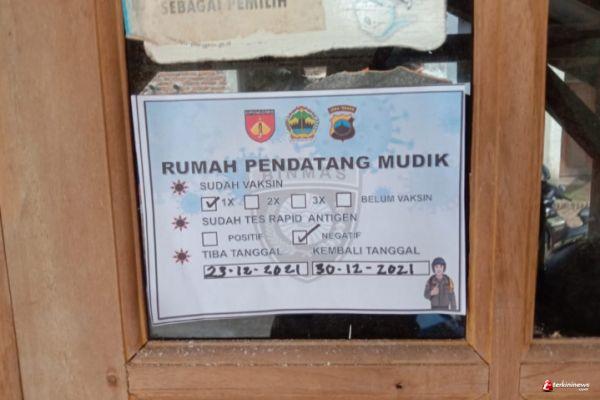 SEBAGAI PEMILIH
RUMAH PENDATANG MUDIK
BINMAS
SUDAH VAKSIN
1X 2X 3X BELUM VAKSIN
SUDAH TES RAPID ANTIGEN
POSITIF NEGATIF
TIBA TANGGAL KEMBALI TANGGAL
23-12-2021 30-12-2021
terkininews
.com